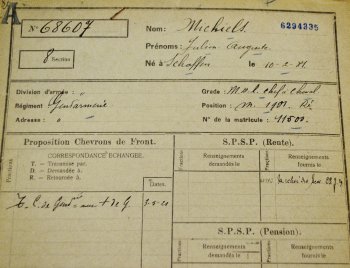 A
N° 68607
8 Section
Nom: Michiels.
6294335
Prénoms: Julien Auguste
Né à Schaffen le 10-2-81
Division d'armée: "
Régiment Gendarmerie
Adresse: "
Grade: M.d.l. chef à cheval
Position: m. 1901
N° de la matricule: 11500
Proposition Chevrons de Front.
CORRESPONDANCE ÉCHANGÉE.
T. — Transmise par.
D. — Demandée à
R. — Retournée à
Fractions
Dates.
S.P.S.P. (Rente).
Fractions
Renseignements demandés le
Fractions
Renseignements fournis le
S.P.S.P. (Pension)
Fractions
Renseignements demandés le
Fractions
Renseignements fournis le